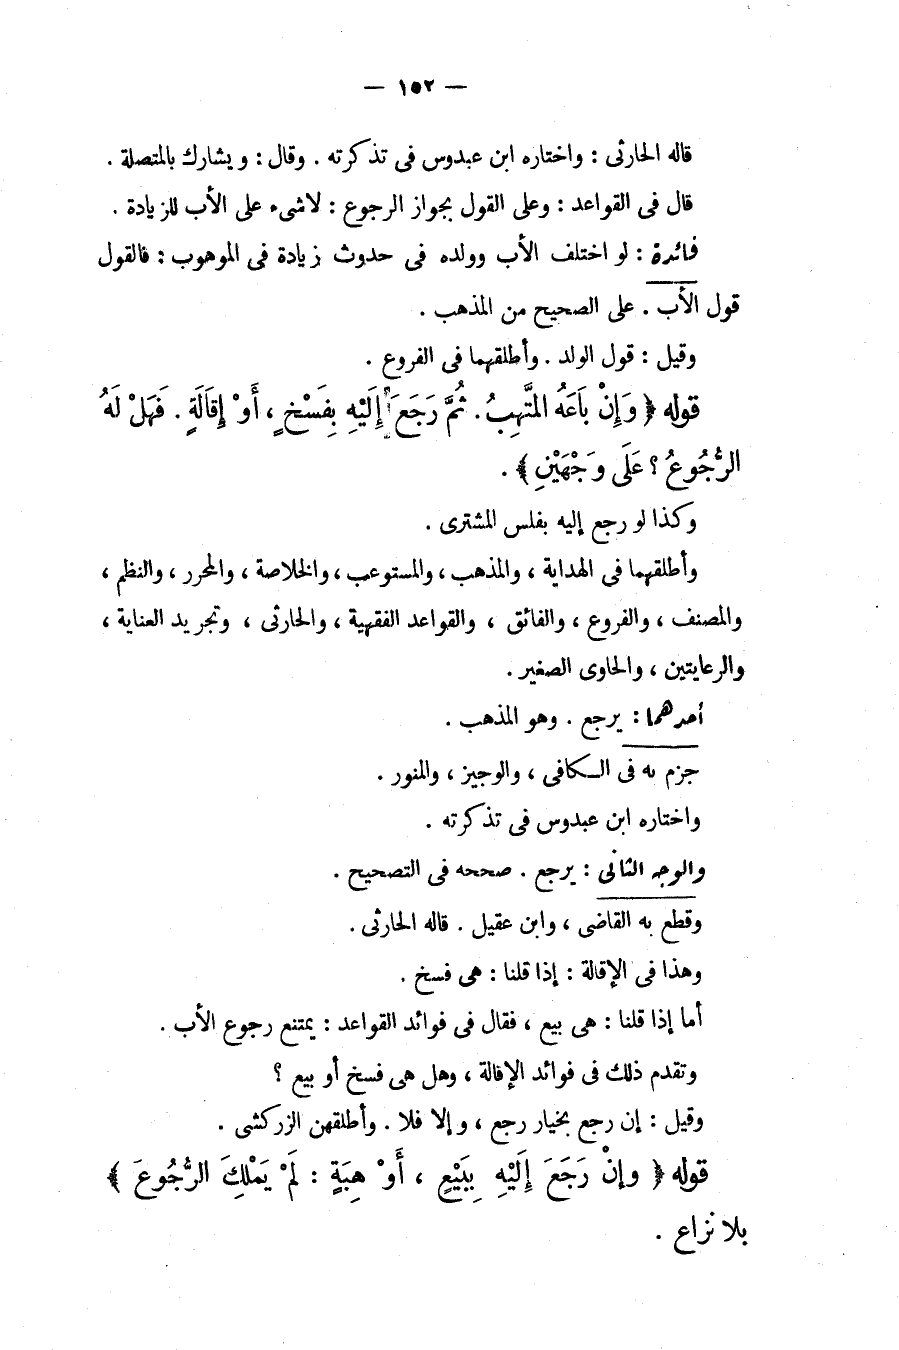 — ١٥٢ —
قاله الحارثى : واختاره ابن عبدوس فى تذكرته . وقال : ويشارك بالمتصلة .
قال فى القواعد : وعلى القول بجواز الرجوع : لاشىء على الأب للزيادة .
فائدة : لو اختلف الأب وولده فى حدوث زيادة فى الموهوب : فالقول
قول الأب . على الصحيح من المذهب .
وقيل : قول الولد . وأطلقهما فى الفروع .
قوله ﴿ وَإِنْ بَاعَهُ المتَّهِبُ . ثُمَّ رَجَعَ إِلَيْهِ بِفَسْخٍ ، أَوْ إِقَالَةٍ . فَهَلْ لَهُ
الرُّجُوعُ ؟ عَلَى وَجْهَيْنِ ﴾ .
وكذا لو رجع إليه بفلس المشترى .
وأطلقهما فى الهداية ، والمذهب ، والمستوعب ، والخلاصة ، والمحرر ، والنظم ،
والمصنف ، والفروع ، والفائق ، والقواعد الفقهية ، والحارثى ، وتجريد العناية ،
والرعايتين ، والحاوى الصغير .
أحدهما : يرجع . وهو المذهب .
جزم به فى الكافى ، والوجيز ، والمنور .
واختاره ابن عبدوس فى تذكرته .
والوجه الثانى : يرجع . صححه فى التصحيح .
وقطع به القاضى ، وابن عقيل . قاله الحارثى .
وهذا فى الإقالة : إذا قلنا : هى فسخ .
أما إذا قلنا : هى بيع ، فقال فى فوائد القواعد : يمتنع رجوع الأب .
وتقدم ذلك فى فوائد الإقالة ، وهل هى فسخ أو بيع ؟
وقيل : إن رجع بخيار رجع ، وإلا فلا . وأطلقهن الزركشى .
قوله ﴿ وإنْ رَجَعَ إِلَيْهِ بِبَيْعٍ ، أَوْ هِبَةٍ : لَمْ يَمْلِكَ الرُّجُوعَ ﴾
بلا نزاع .